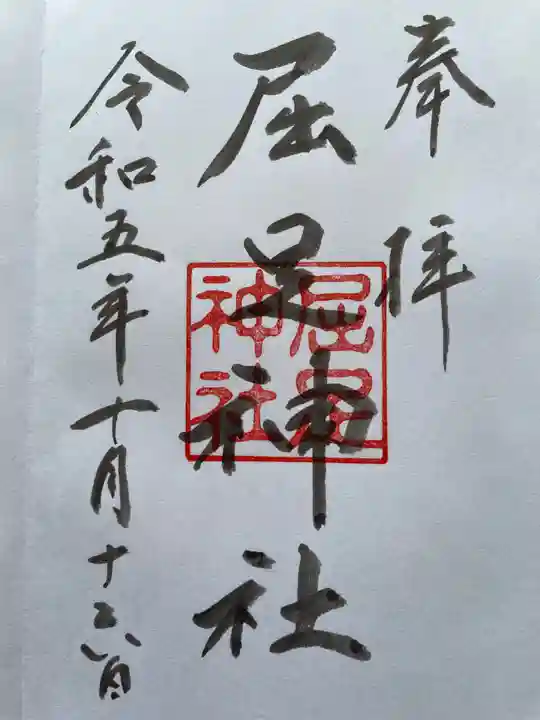 奉拝
屈足神社
屈足
神社
令和五年十月十六日